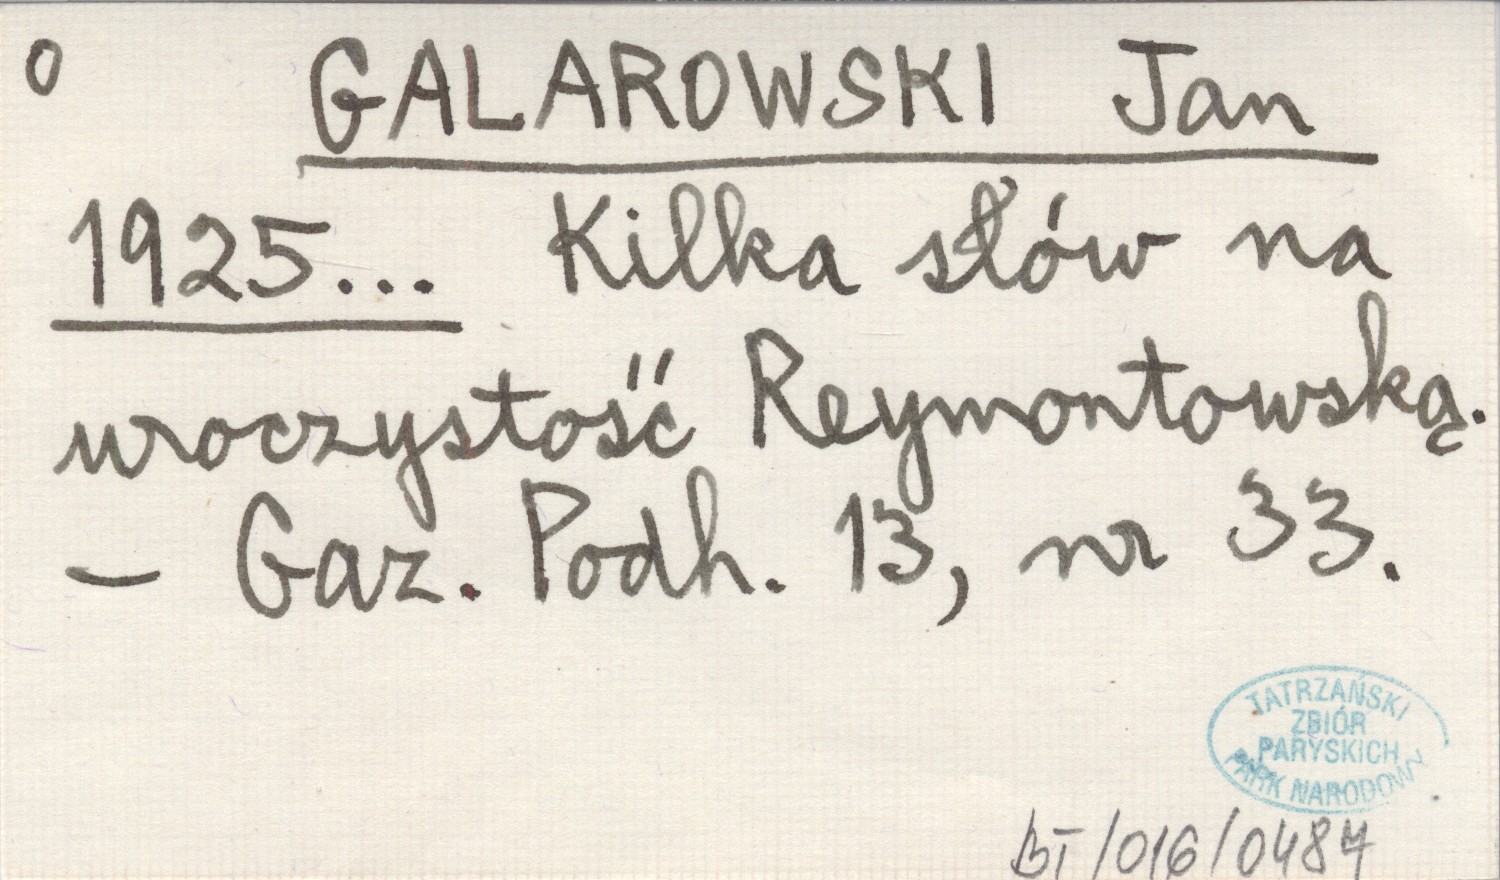 O GALAROWSKI Jan
1925... Kilka słów na
uroczystość Reymontowską.
– Gaz. Podh. 13, nr 33.
TATRZAŃSKI
ZBIÓR
PARYSKICH
PARK NARODOWY
BT/016/0487